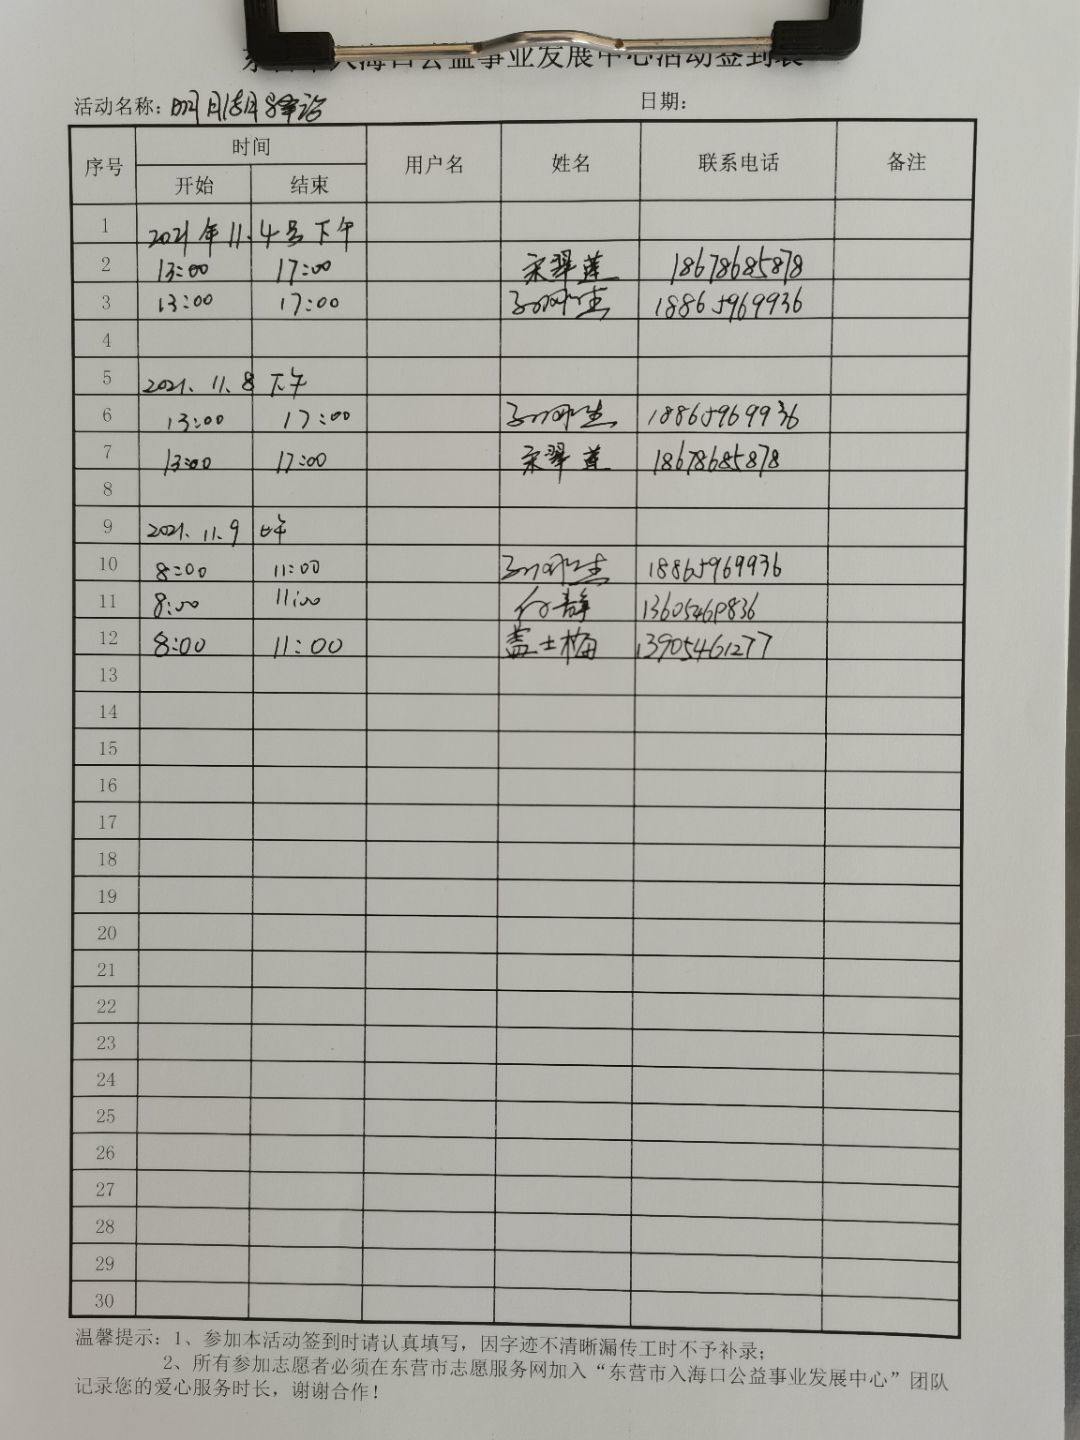 东营市入海口公益事业发展中心活动签到表
活动名称: 明月清月
日期:
序号 时间 用户名 姓名 联系电话 备注
开始 结束
1 2021年11.4号下午
2 13:00 17:00 宋翠莲 18678685878
3 13:00 17:00 18865969936
4
5 2021.11.8 下午
6 13:00 17:00 18865969936
7 13:00 17:00 宋翠莲 18678685878
8
9 2021.11.9
10 8:00 11:00 18865969936
11 8:00 11:00 付静 13605469836
12 8:00 11:00 盖士梅 13905461277
13
14
15
16
17
18
19
20
21
22
23
24
25
26
27
28
29
30
温馨提示: 1、参加本活动签到时请认真填写, 因字迹不清晰漏传工时不予补录;
2、所有参加志愿者必须在东营市志愿服务网加入“东营市入海口公益事业发展中心”团队
记录您的爱心服务时长, 谢谢合作!